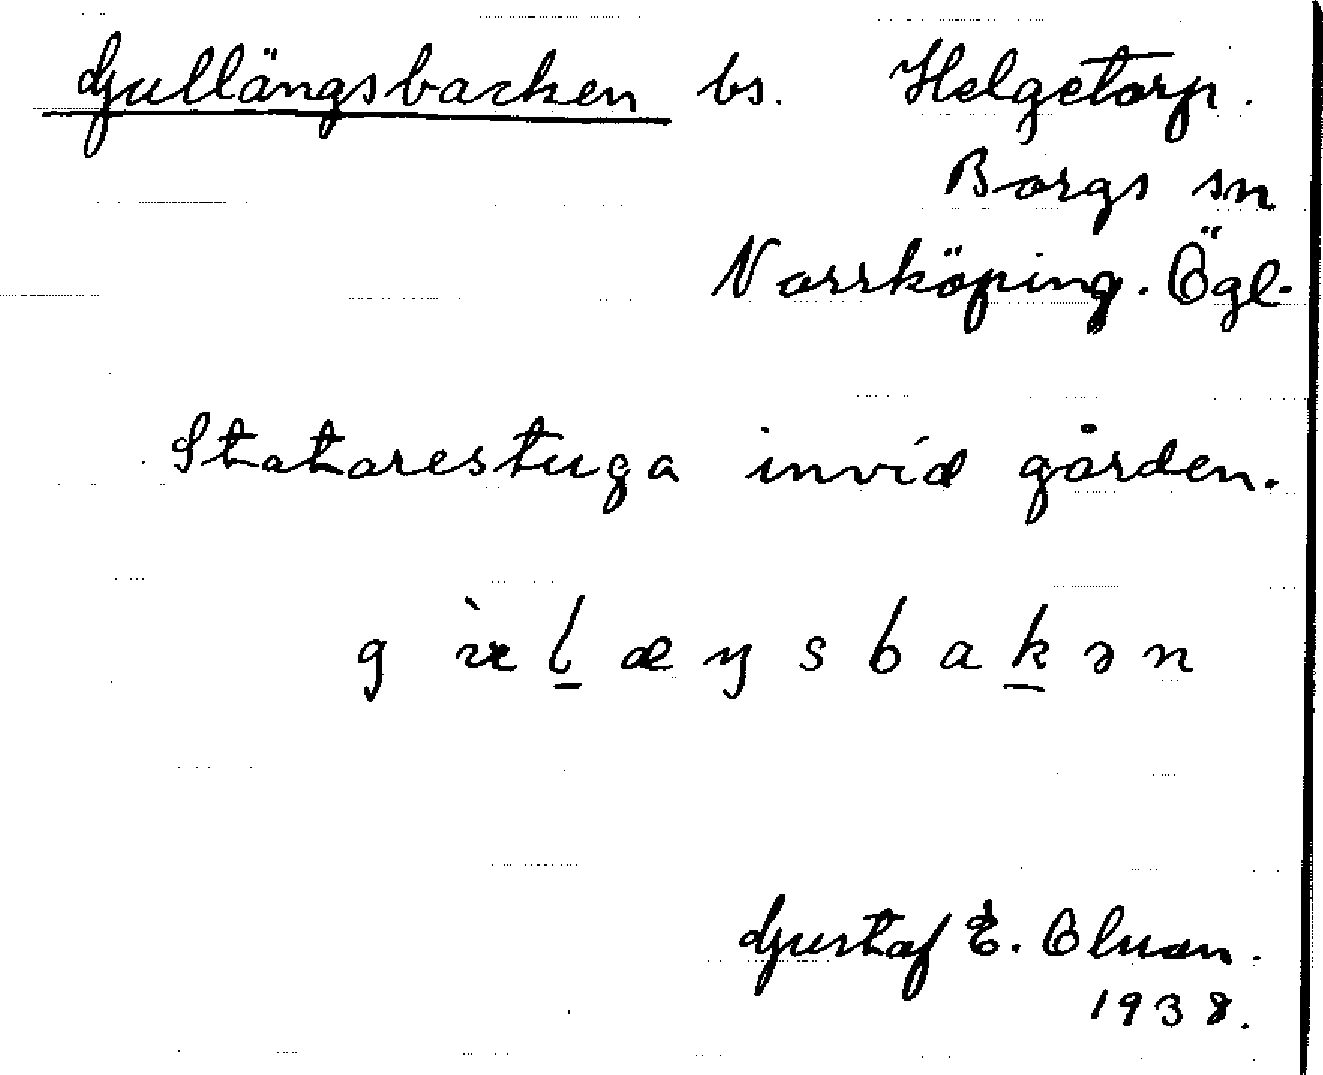 Gullängsbacken bs. Helgetorp.
Borgs sn
Norrköping. Ögl.
Statarestuga invid gården.
Gustaf E. Olsson.
1938.